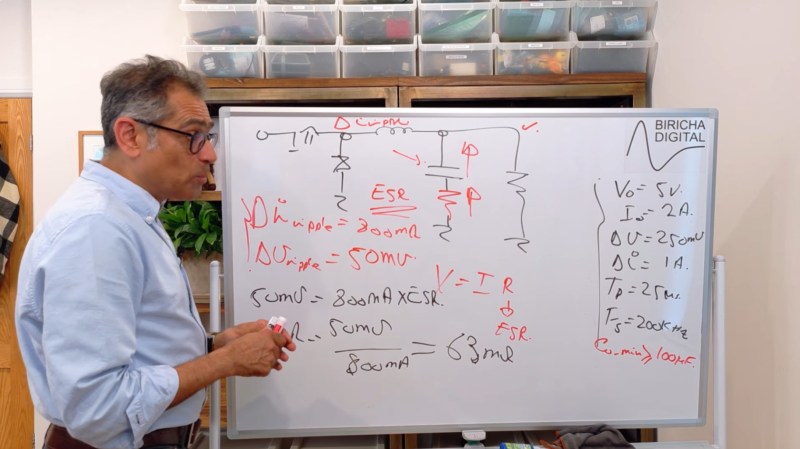 Δi ripple
BIRICHA
DIGITAL
ESR
Δi ripple = 800mA
ΔU ripple = 50mV
V = I R
ESR
50mV = 800mA x ESR
50mV
800mA
= 63mΩ
Vo = 5V
Io = 2A
ΔU = 250mV
Δi = 1A
Tp = 25ms
Fs = 200kHz
Co-min ≥ 100μF